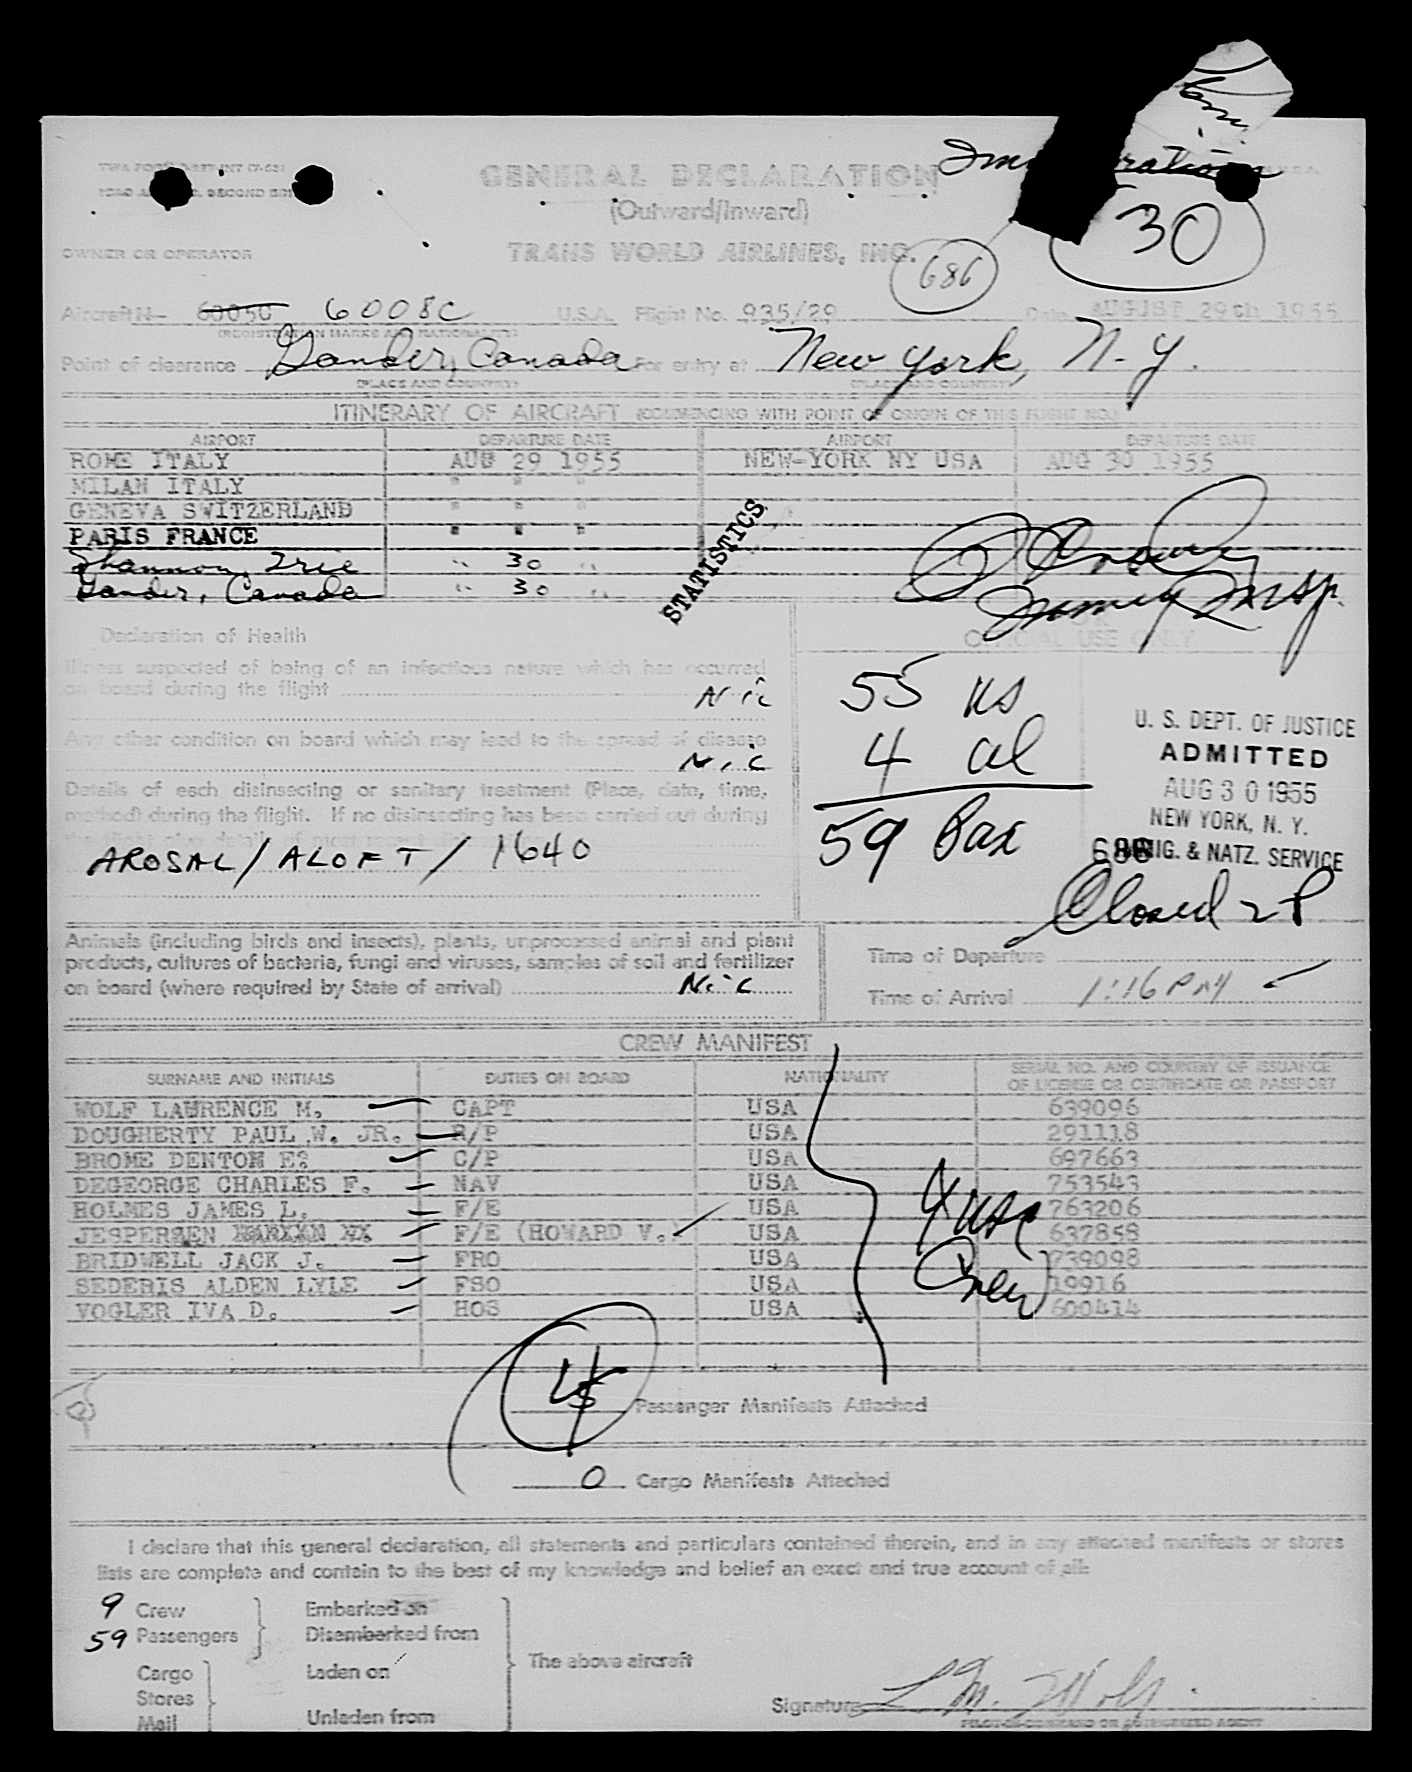 GENERAL DECLARATION
(Outward/Inward)
30
OWNER OR OPERATOR
TRANS WORLD AIRLINES, INC.
686
Aircraft N- 6008C U.S.A. Flight No. 935/29 Date AUGUST 29th 1955
(REGISTRATION MARKS AND NATIONALITY)
Point of clearance Gander, Canada For entry at New York, N.Y.
(PLACE AND COUNTRY) (PLACE AND COUNTRY)
ITINERARY OF AIRCRAFT (COMMENCING WITH POINT OF ORIGIN OF THIS FLIGHT NO.)
AIRPORT DEPARTURE DATE AIRPORT DEPARTURE DATE
ROME ITALY AUG 29 1955 NEW-YORK NY USA AUG 30 1955
MILAN ITALY " " "
GENEVA SWITZERLAND " " "
PARIS FRANCE " " "
Shannon, Irie " 30 "
Gander, Canada " 30 "
STATISTICS
Immig Insp.
Declaration of Health
OFFICIAL USE ONLY
Illness suspected of being of an infectious nature which has occurred
on board during the flight Nil
55 us
Any other condition on board which may lead to the spread of disease
Nil
4 al
59 Pax
Details of each disinsecting or sanitary treatment (Place, date, time,
method) during the flight. If no disinsecting has been carried out during
AROSAL/ALOFT/1640
U. S. DEPT. OF JUSTICE
ADMITTED
AUG 30 1955
NEW YORK, N. Y.
686 IMMIG. & NATZ. SERVICE
Closed 2 P
Animals (including birds and insects), plants, unprocessed animal and plant
products, cultures of bacteria, fungi and viruses, samples of soil and fertilizer
on board (where required by State of arrival) Nil
Time of Departure
Time of Arrival 1:16 PM
CREW MANIFEST
SURNAME AND INITIALS DUTIES ON BOARD NATIONALITY SERIAL NO. AND COUNTRY OF ISSUANCE
OF LICENSE OR CERTIFICATE OR PASSPORT
WOLF LAURENCE M. CAPT USA 639096
DOUGHERTY PAUL W. JR. R/P USA 291118
BROME DENTON E. C/P USA 697663
DEGEORGE CHARLES F. NAV USA 753543
HOLMES JAMES L. F/E USA 763206
JESPERSEN F/E (HOWARD V.) USA 637858
BRIDWELL JACK J. FRO USA 739098
SEDERIS ALDEN LYLE FSO USA 19916
VOGLER IVA D. HOS USA 600414
Crew
Passenger Manifests Attached
0 Cargo Manifests Attached
I declare that this general declaration, all statements and particulars contained therein, and in any attached manifests or stores
lists are complete and contain to the best of my knowledge and belief an exact and true account of all:
9 Crew
59 Passengers
Embarked on
Disembarked from
Cargo
Stores
Mail
Laden on
Unladen from
The above aircraft
Signature L M. Wolf.
PILOT-IN-COMMAND OR AUTHORIZED AGENT